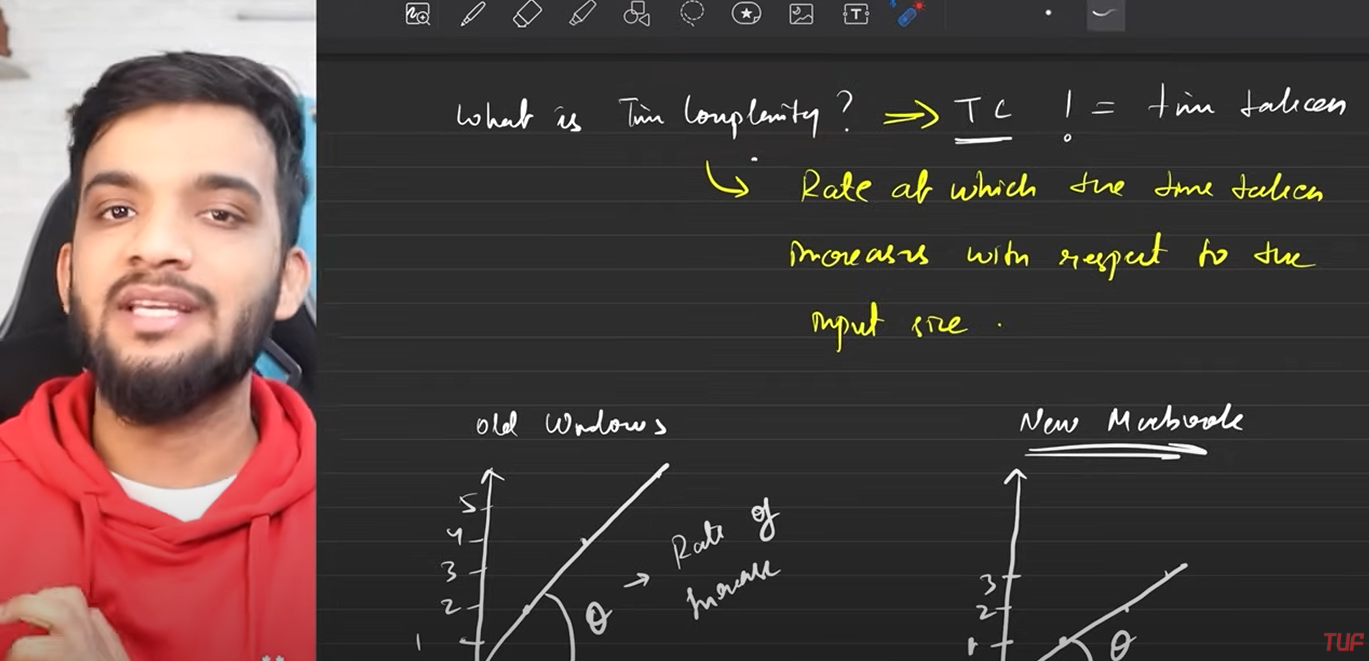 What is Time Complexity? => TC != time taken
Rate at which the time taken
increases with respect to the
input size.
Old Windows
New Macbook
5
4
3
2
1
θ → Rate of
increase
3
2
1
θ
TUF